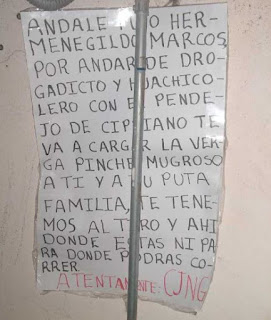 ANDALE HER-
MENEGILDO MARCOS,
POR ANDAR DE DRO-
GADICTO Y HUACHICO-
LERO CON EL PENDE-
JO DE CIPRIANO TE
VA A CARGAR LA VER
GA PINCHE MUGROSO
A TI Y A TU PUTA
FAMILIA, TE TENE-
MOS AL TIRO Y AHI
DONDE ESTAS NI PA
RA DONDE PODRAS CO-
RRER
ATENTAMENTE: CJNG